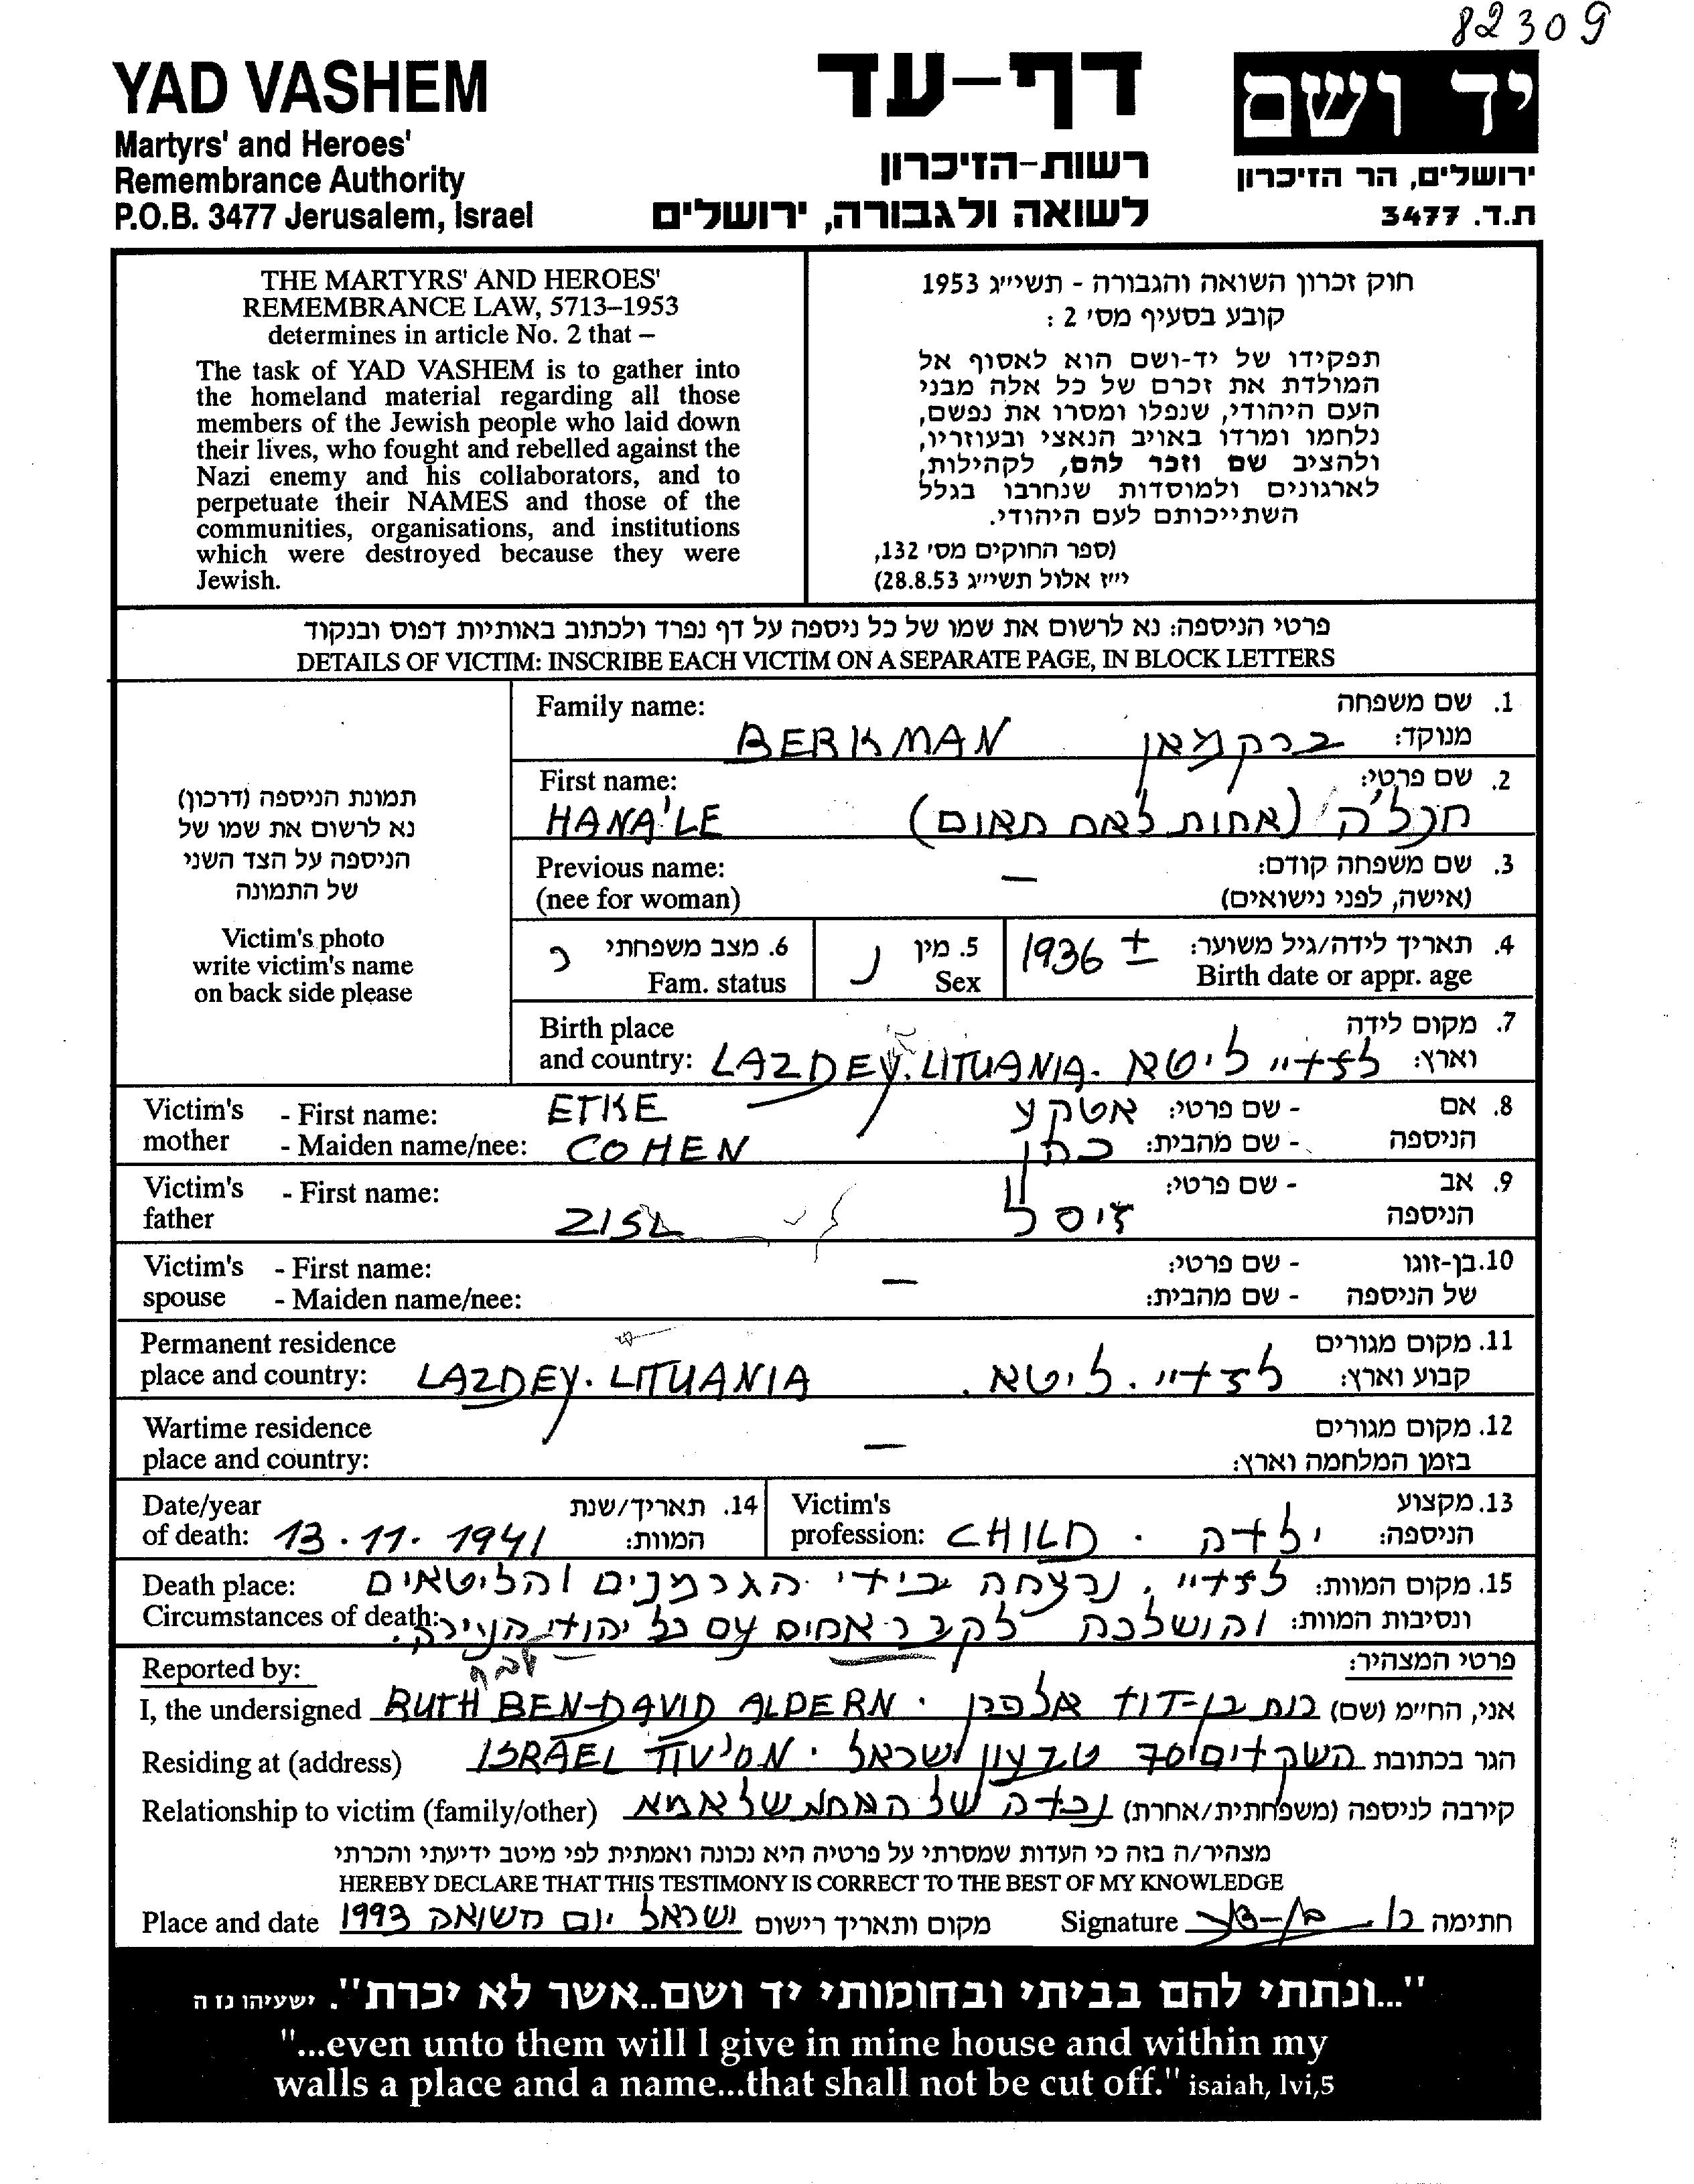 82309
YAD VASHEM
Martyrs' and Heroes'
Remembrance Authority
P.O.B. 3477 Jerusalem, Israel
דף-עד
רשות-הזיכרון
לשואה ולגבורה, ירושלים
יד ושם
ירושלים, הר הזיכרון
ת.ד. 3477
THE MARTYRS' AND HEROES'
REMEMBRANCE LAW, 5713–1953
determines in article No. 2 that –
The task of YAD VASHEM is to gather into
the homeland material regarding all those
members of the Jewish people who laid down
their lives, who fought and rebelled against the
Nazi enemy and his collaborators, and to
perpetuate their NAMES and those of the
communities, organisations, and institutions
which were destroyed because they were
Jewish.
חוק זכרון השואה והגבורה - תשי"ג 1953
קובע בסעיף מס' 2 :
תפקידו של יד-ושם הוא לאסוף אל
המולדת את זכרם של כל אלה מבני
העם היהודי, שנפלו ומסרו את נפשם,
נלחמו ומרדו באויב הנאצי ובעוזריו,
ולהציב שם וזכר להם, לקהילות,
לארגונים ולמוסדות שנחרבו בגלל
השתייכותם לעם היהודי.
(ספר החוקים מס' 132,
י"ז אלול תשי"ג 28.8.53)
פרטי הניספה: נא לרשום את שמו של כל ניספה על דף נפרד ולכתוב באותיות דפוס ובנקוד
DETAILS OF VICTIM: INSCRIBE EACH VICTIM ON A SEPARATE PAGE, IN BLOCK LETTERS
תמונת הניספה (דרכון)
נא לרשום את שמו של
הניספה על הצד השני
של התמונה
Victim's photo
write victim's name
on back side please
Family name: 1. שם משפחה
BERKMAN ברקמאן מנוקד:
First name: 2. שם פרטי:
HANA'LE חנל'ה (אחות לאח תאום)
Previous name: 3. שם משפחה קודם:
(nee for woman) – (אישה, לפני נישואים)
4. תאריך לידה/גיל משוער: 1936 ± 5. מין נ 6. מצב משפחתי ר
Birth date or appr. age Sex Fam. status
Birth place 7. מקום לידה
and country: LAZDEY. LITUANIA. לזדיי ליטא וארץ:
Victim's - First name: ETKE אטקע - שם פרטי: 8. אם
mother - Maiden name/nee: COHEN כהן - שם מהבית: הניספה
Victim's - First name: - שם פרטי: 9. אב
father ZISL זיסל הניספה
Victim's - First name: - שם פרטי: 10. בן-זוגו
spouse - Maiden name/nee: – - שם מהבית: של הניספה
Permanent residence 11. מקום מגורים
place and country: LAZDEY. LITUANIA לזדיי. ליטא. קבוע וארץ:
Wartime residence 12. מקום מגורים
place and country: – בזמן המלחמה וארץ:
Date/year 14. תאריך/שנת
of death: 13.11.1941 המוות:
Victim's 13. מקצוע
profession: CHILD . ילדה הניספה:
Death place: 15. מקום המוות: לזדיי. נרצחה בידי הגרמנים והליטאים
Circumstances of death: ונסיבות המוות: והושלכה לקבר אחים עם כל יהודי העיירה.
Reported by: פרטי המצהיר:
I, the undersigned RUTH BEN-DAVID ALPERN . רות בן-דוד אלפרן אני, החי"מ (שם)
Residing at (address) ISRAEL TIV'ON . השקדים 70 טבעון ישראל הגר בכתובת
Relationship to victim (family/other) נכדה של האחות של אמא קירבה לניספה (משפחתית/אחרת)
מצהיר/ה בזה כי העדות שמסרתי על פרטיה היא נכונה ואמתית לפי מיטב ידיעתי והכרתי
HEREBY DECLARE THAT THIS TESTIMONY IS CORRECT TO THE BEST OF MY KNOWLEDGE
Place and date ישראל יום השואה 1993 מקום ותאריך רישום Signature חתימה
"...ונתתי להם בביתי ובחומותי יד ושם..אשר לא יכרת". ישעיהו נז ה
"...even unto them will I give in mine house and within my
walls a place and a name...that shall not be cut off." isaiah, lvi,5